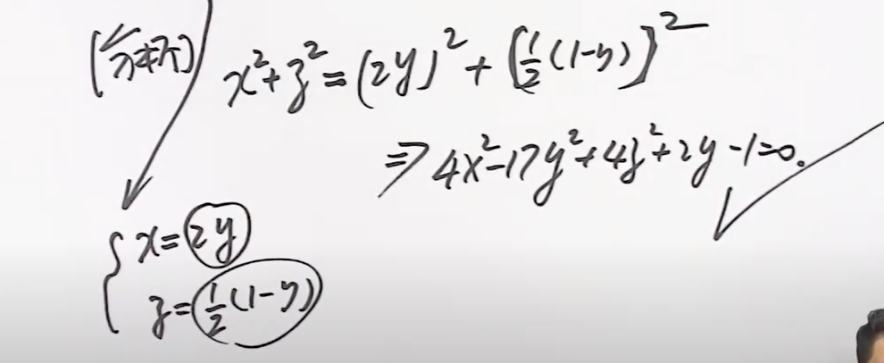 x²+z²=(2y)²+[½(1-y)]²
⇒4x²-17y²+4z²+2y-1=0.
{x=2y
z=½(1-y)